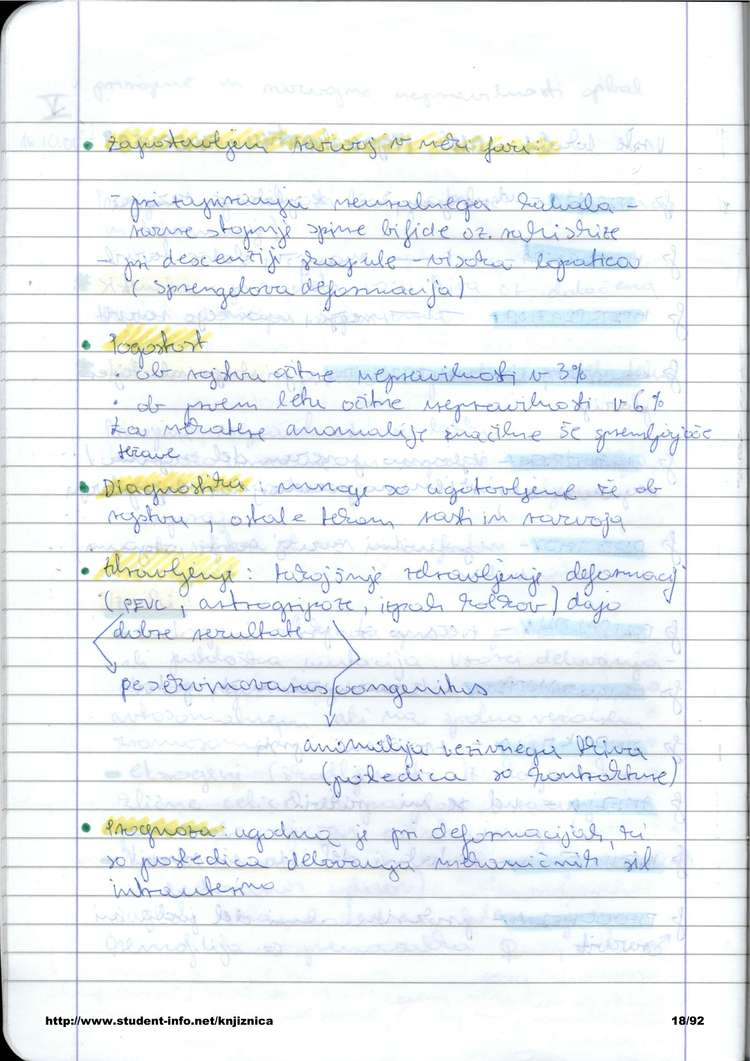 • Zapostavljen razvoj v neki fazi:
- pri zapiranju neuralnega kanala -
razne stopnje spine bifide oz. rahishize
- pri descenziji skapule - visoka lopatica
(Sprengelova deformacija)
• Pogostost
• ob rojstvu očitne nepravilnosti v 3%
• ob prvem letu očitne nepravilnosti v 6%
Za nekatere anomalije značilne še spremljajoče
težave
• Diagnostika: mnoge so ugotovljene že ob
rojstvu, ostale tekom rasti in razvoja
• Zdravljenje: takojšnje zdravljenje deformacij
(PEVC, artrogripoze, izpah kolkov) dajo
dobre rezultate
pes ekvinovarus congenitus
anomalija vezivnega tkiva
(posledica so kontrakture)
• Prognoza: ugodna je pri deformacijah, ki
so posledica delovanja mehaničnih sil
intrauterino
http://www.student-info.net/knjiznica
18/92